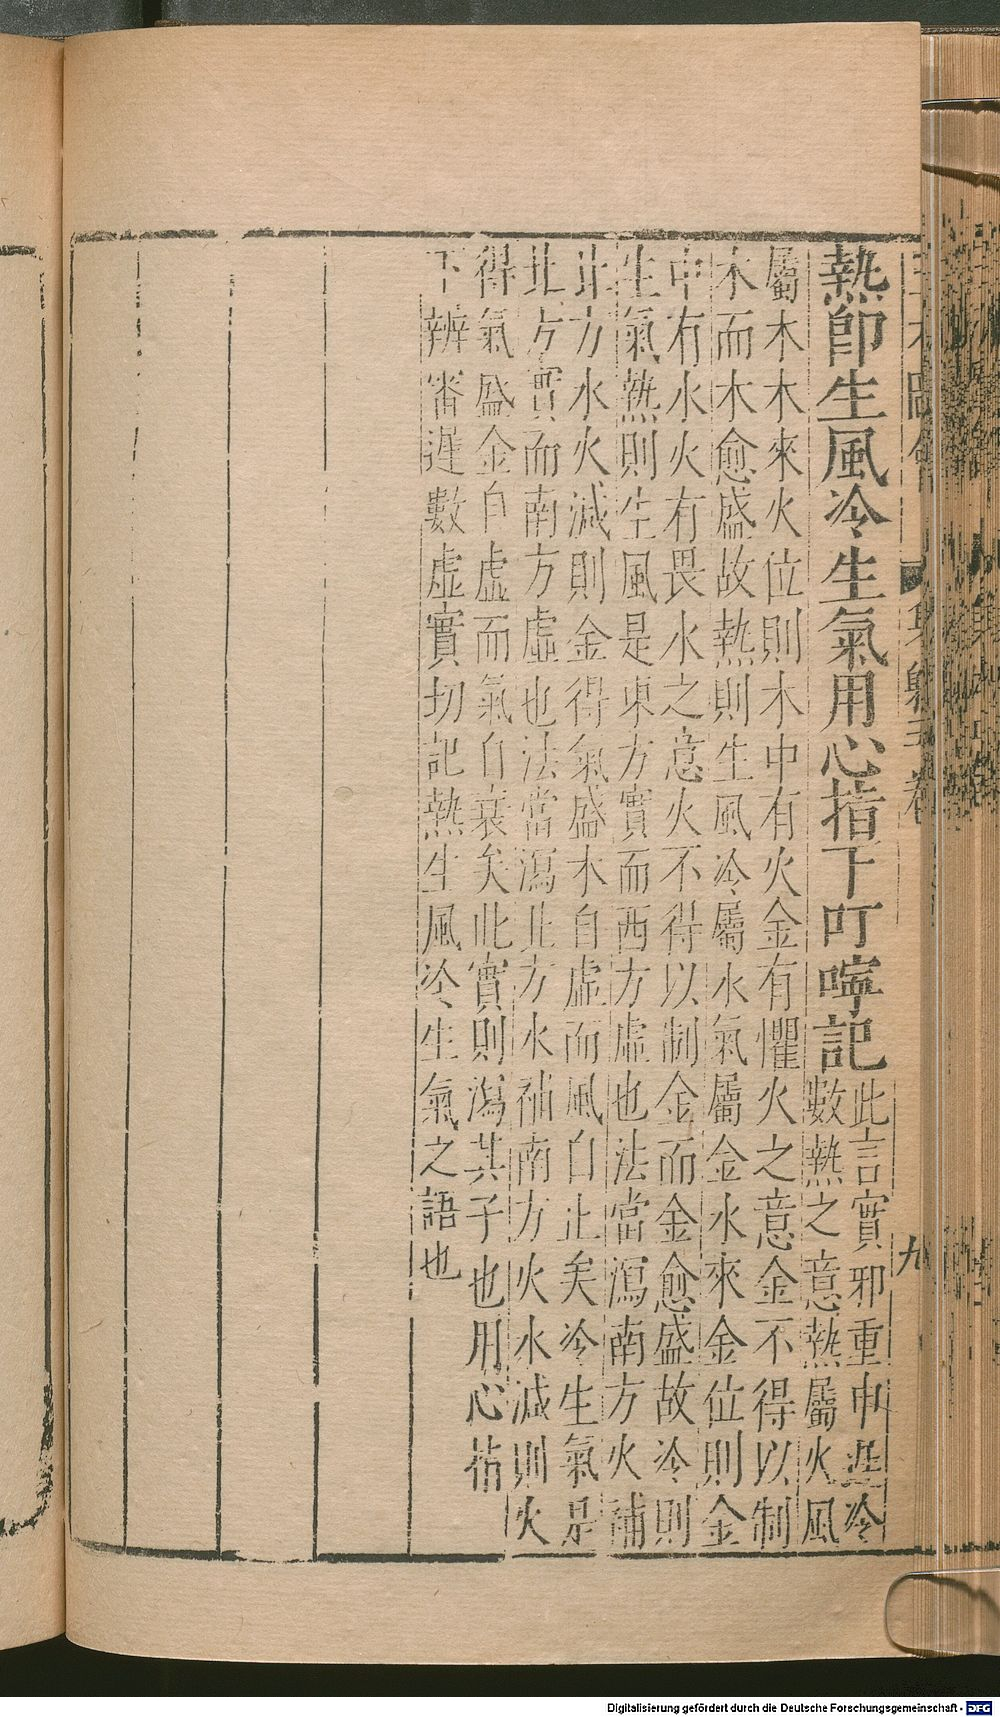 九
熱即生風冷生氣用心指下叮嚀記
此言實邪重申遲冷
數熱之意熱屬火風
屬木木來火位則木中有火金有懼火之意金不得以制
木而木愈盛故熱則生風冷屬水氣屬金水來金位則金
中有水火有畏水之意火不得以制金而金愈盛故冷則
生氣熱則生風是東方實而西方虛也法當瀉南方火補
北方水火減則金得氣盛木自虛而風自止矣冷生氣是
北方實而南方虛也法當瀉北方水補南方火水減則火
得氣盛金自虛而氣自衰矣此實則瀉其子也用心指
下辨審遲數虛實切記熱生風冷生氣之語也
Digitalisierung gefördert durch die Deutsche Forschungsgemeinschaft - DFG